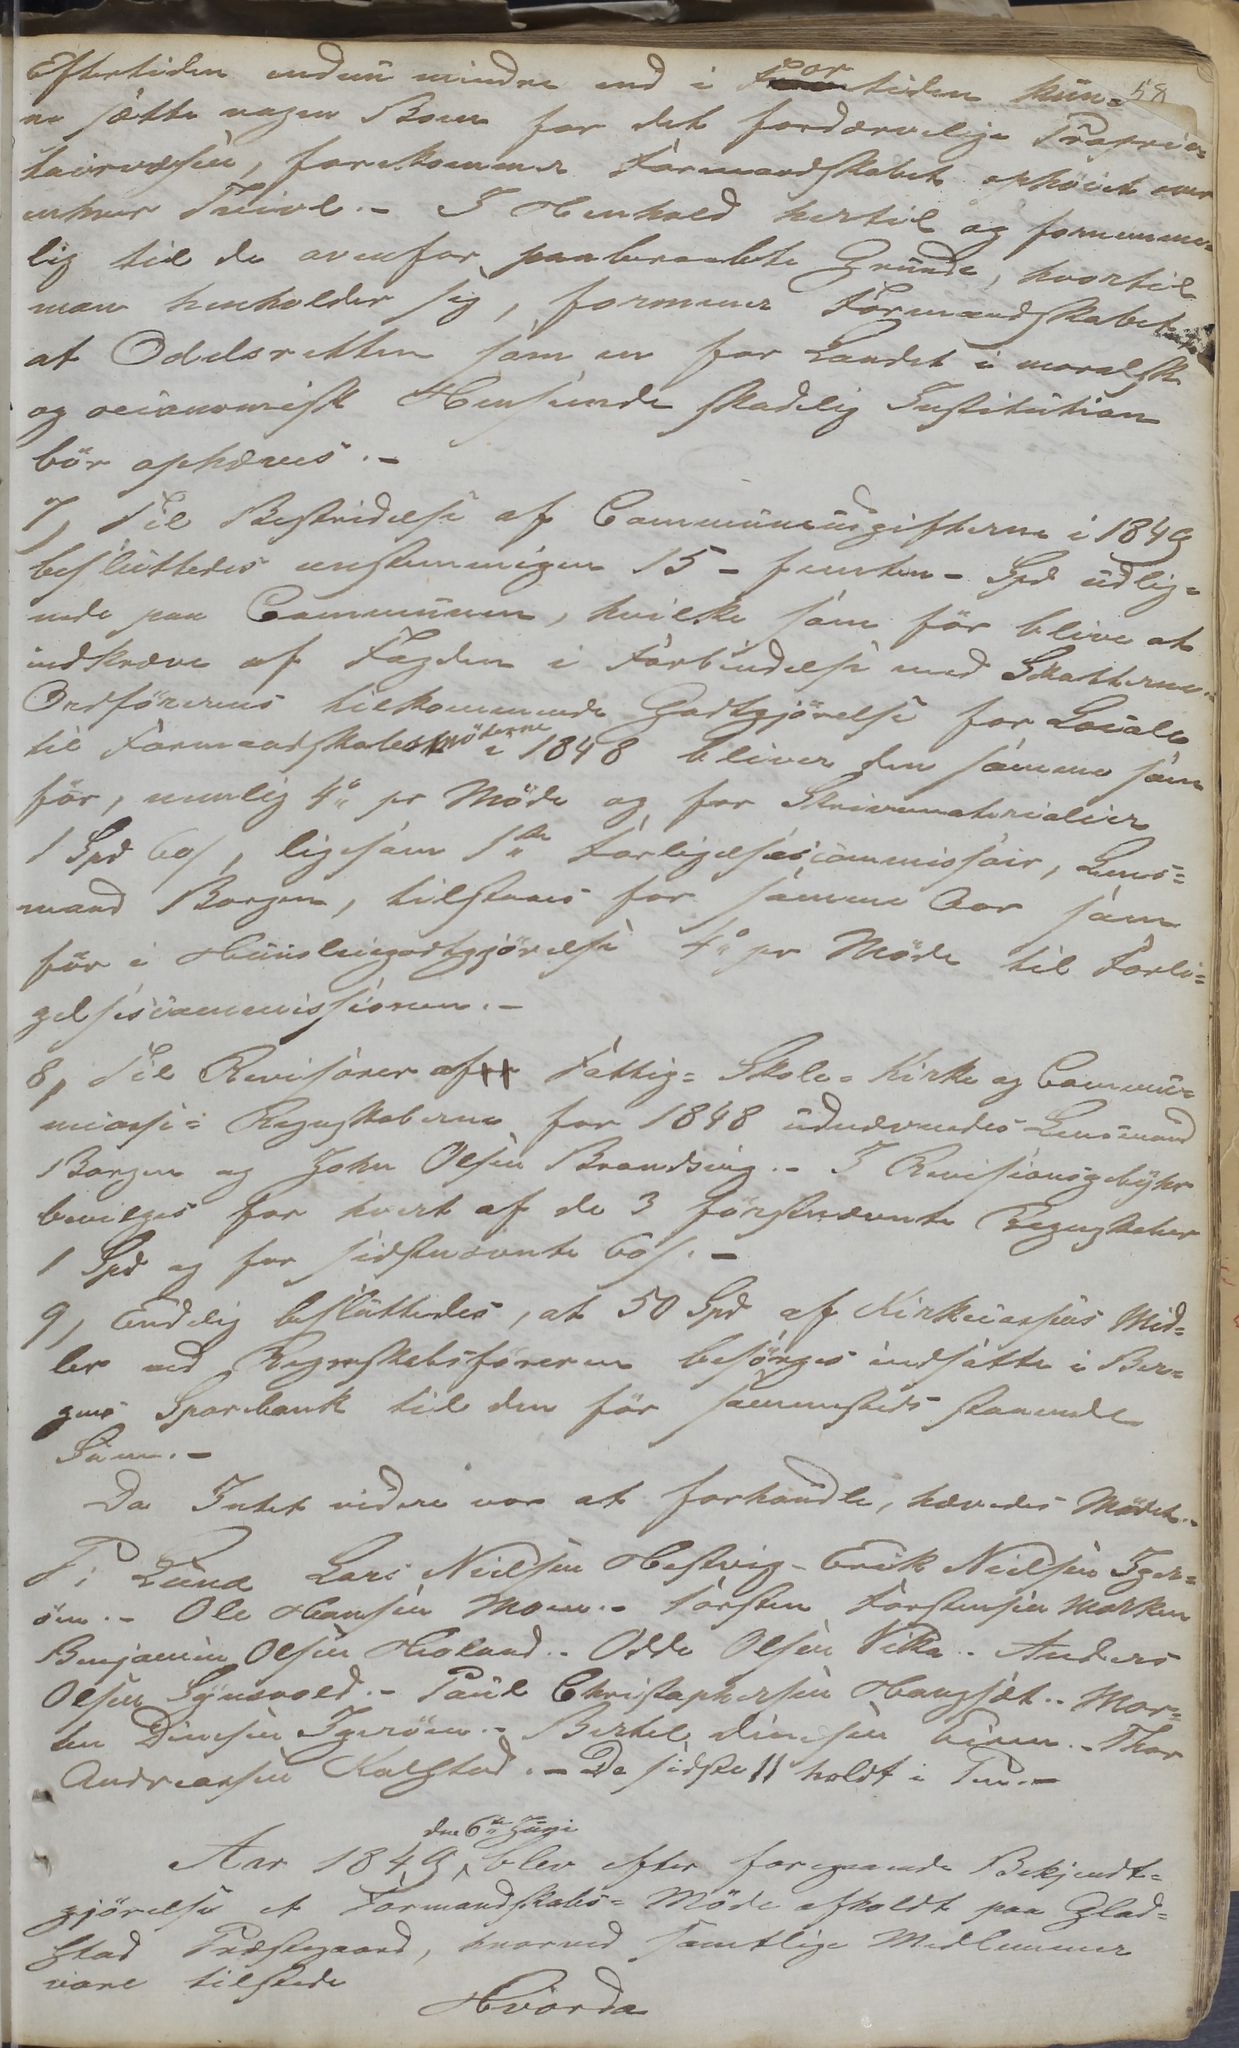 58
Eftertiden endnu mindre end i Fortiden kun-
ne sætte nogen Bom for det fordærvelige Proprie-
tairvæsen, forekommer Formandskabet ophöiet over
enhver Tvivl. - I Henhold hertil og fornemme-
lig til de ovenfor paaberaabte Grunde, hvortil
man henholder sig, formener Formandskabet
at Odelsretten som en for Landet i moralsk
og oeconomisk Henseende skadelig Institution
bör ophæves. -
7, Til Bestridelse af Communeudgifterne i 1849
besluttedes enstemmigen 15 - femten - Spd udlig-
nede paa Communen, hvilke som för blive at
indkræve af Fogden i Forbindelse med Skatterne. -
Ordförerens tilkommende Godtgjörelse for Locale
til Formandskabsmöterne i 1848 bliver den samme som
för, nemlig 4 pr Möde og for Skrivematerialier
1 Spd 60 s, ligesom 1ste Forligelsescommissair, Lens-
mand Borgen, tilstaaes for samme Aar som
för i Huusleiegodtgjörelse 4 pr Möde til Forli-
gelsescommissionen. -
8, Til Revisorer af Fattig- Skole- Kirke og Commu-
necasse- Regnskaberne for 1848 udnævnedes Lensmand
Borgen og John Olsen Brandsvig. - I Revisionsgebyhr
bevilges for hvert af de 3 förstnævnte Regnskaber
1 Spd og for sidstnævnte 60 s. -
9, Endelig besluttedes, at 50 Spd af Kirkecassens Mid-
ler ved Regnskabsföreren besörges indsatte i Ber-
gens Sparebank til den för sammesteds staaende
Sum. -
Da Intet videre var at forhandle, hævedes Mödet. -
P. Lund Lars Nielsen Hestvig - Erik Nielsen Iger-
öen. - Ole Hansen Moen. - Torsten Torstensen Marken
Benjamin Olsen Hioland. - Odde Olsen Vikke. - Anders
Olsen Synesvold. - Paul Christophersen Hongset. - Mor-
ten Dinesen Igeröen. - Bertel Dinesen Eiven. - Thor
Andreassen Kalstad. - De sidste 11 holdt i Pen. -
Aar 1849, den 6te Juni blev efter foregaaende Bekjendt-
gjörelse et Formandskabs- Möde afholdt paa Glad-
stad Præstegaard, hvorved samtlige Medlemmer
vare tilstede
Hvorda